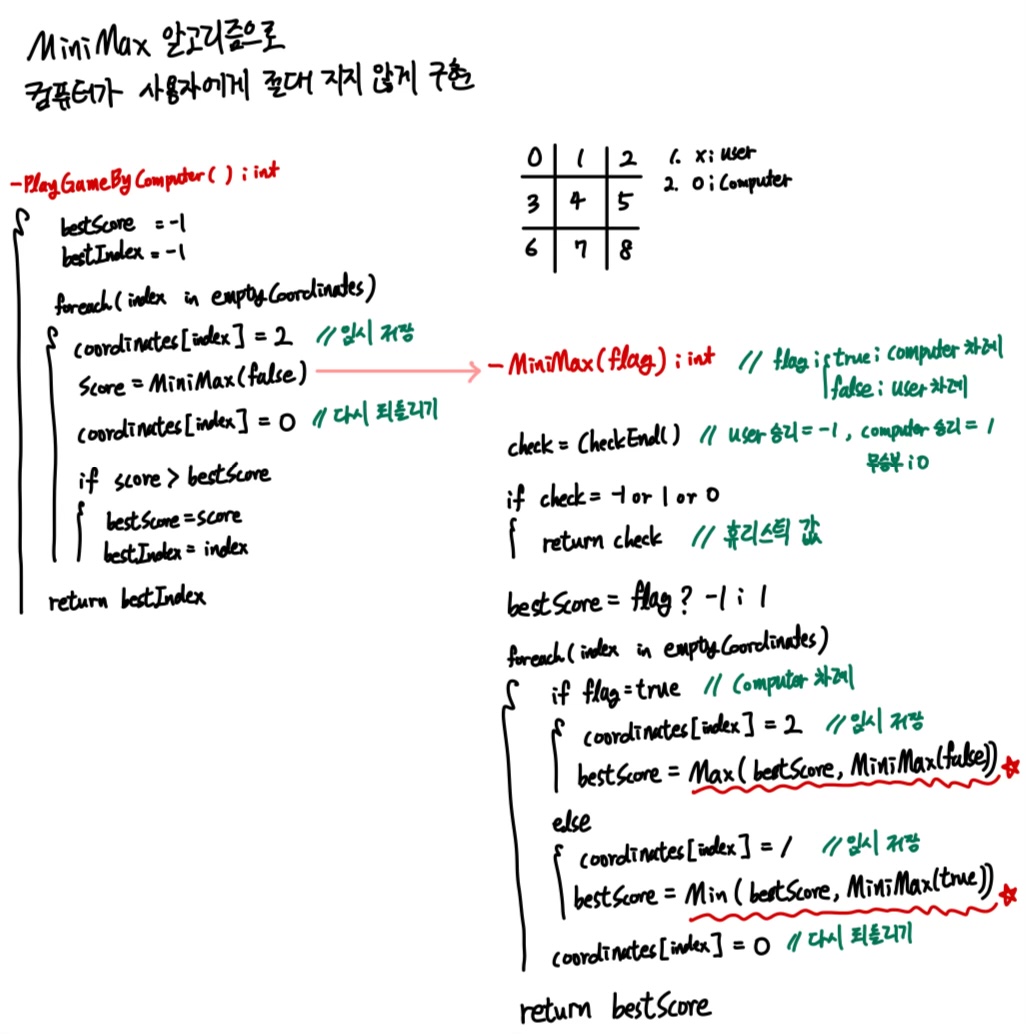 MiniMax 알고리즘으로
컴퓨터가 사용자에게 절대 지지 않게 구현
0 1 2
3 4 5
6 7 8
1. X : user
2. O : Computer
-PlayGameByComputer( ) : int
bestScore = -1
bestIndex = -1
foreach(index in emptyCoordinates)
coordinates[index] = 2 // 임시 저장
Score = MiniMax(false)
coordinates[index] = 0 // 다시 되돌리기
if score > bestScore
bestScore = score
bestIndex = index
return bestIndex
-MiniMax(flag) : int // flag : true : computer 차례
false : user 차례
check = CheckEnd( ) // user 승리 = -1, computer 승리 = 1
무승부 : 0
if check = -1 or 1 or 0
return check // 휴리스틱 값
bestScore = flag ? -1 : 1
foreach(index in emptyCoordinates)
if flag = true // Computer 차례
coordinates[index] = 2 // 임시 저장
bestScore = Max(bestScore, MiniMax(false))
else
coordinates[index] = 1 // 임시 저장
bestScore = Min(bestScore, MiniMax(true))
coordinates[index] = 0 // 다시 되돌리기
return bestScore